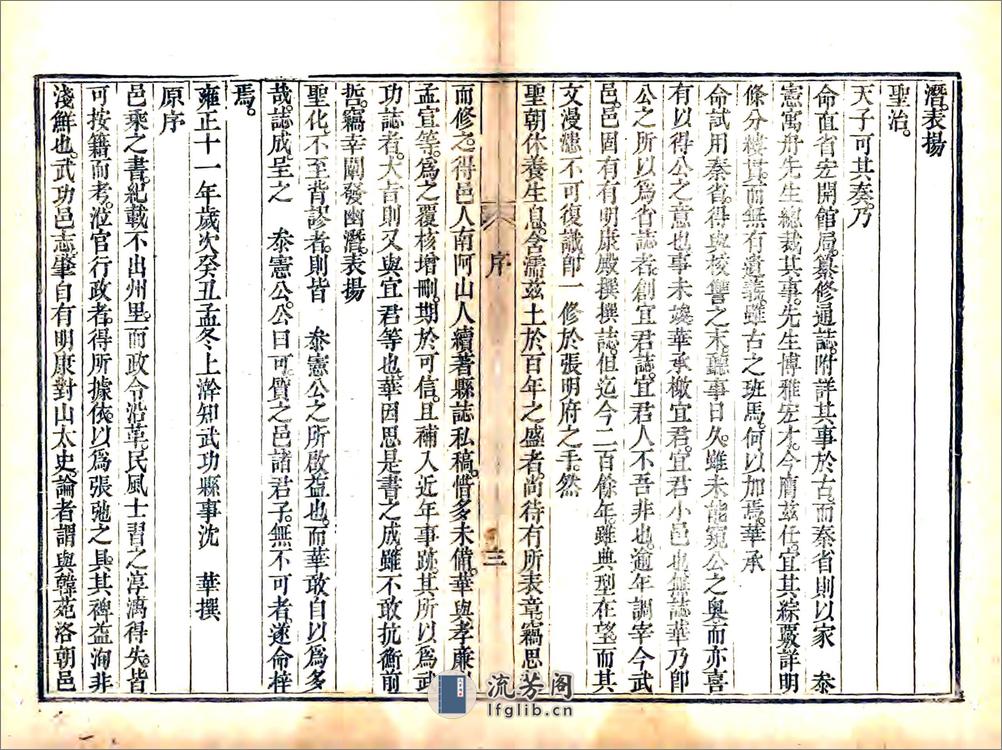 潛表揚
聖治
天子可其奏乃
命直省宏開館局纂修通誌附詳其事於古而秦省則以家　泰
憲寓舟先生總裁其事先生博雅宏才今膺茲任宜其綜覈詳明
條分縷貫而無有遺義雖古之班馬何以加焉華承
命試用秦省得與校讐之末聽事日久雖未能窺公之奧而亦喜
有以得公之意也事未竣華承檄宜君宜君小邑也無誌華乃即
公之所以為省誌者創宜君誌宜君人不吾非也逾年調宰今武
邑邑固有有明康殿撰撰誌但迄今二百餘年雖典型在望而其
文漫漶不可復識即一修於張明府之手然
聖朝休養生息含濡茲土於百年之盛者尚待有所表章竊思
序
三
而修之得邑人南阿山人續著縣誌私稿惜多未備華與孝廉
孟宣等為之覆核增刪期於可信且補入近年事跡其所以為武
功誌者大旨則又與宜君等也華因思是書之成雖不敢抗衡前
哲竊幸闡發幽潛表揚
聖化不至背謬者則皆　泰憲公之所啟益也而華敢自以為多
哉誌成呈之　泰憲公公曰可質之邑諸君子無不可者遂命梓
焉
雍正十一年歲次癸丑孟冬上澣知武功縣事沈　華撰
原序
邑乘之書紀載不出州里而政令沿革民風士習之淳漓得失皆
可按籍而考涖官行政者得所據依以為張弛之具其裨益洵非
淺鮮也武功邑志肇自有明康對山太史論者謂與韓苑洛朝邑
流芳阁
lfglib.cn